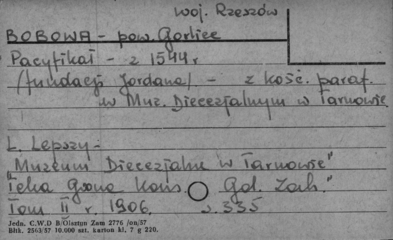 woj. Rzeszów
BOBOWA - pow. Gorlice
Pacyfikał - z 1544 r
(fundacji Jordana) - z kość. paraf.
w Muz. Diecezjalnym w Tarnowie
L. Lepszy -
"Muzeum Diecezjalne w Tarnowie"
"Teka Grona Kons. Gal. Zach."
Tom II r. 1906. s. 335
Jedn. C.W.D B/Olsztyn Zam 2776 /on/57
Bltk. 2563/57 10.000 szt. karton kl. 7 g 220.